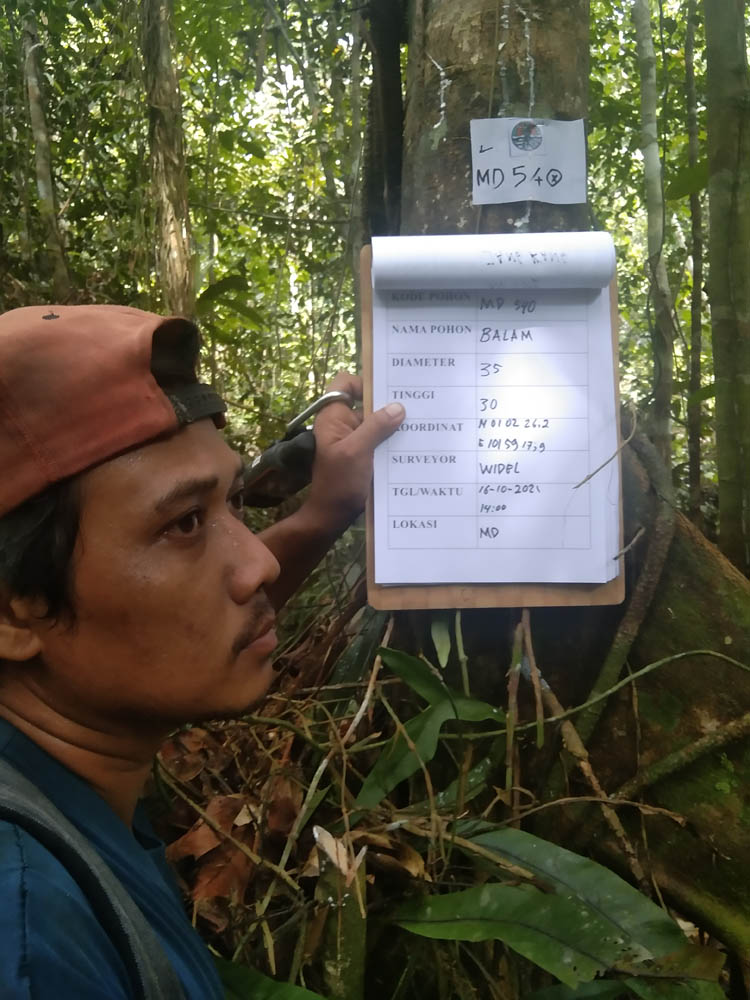 MD 540
KODE POHON MD 540
NAMA POHON BALAM
DIAMETER 35
TINGGI 30
KOORDINAT N 01 02 26.2
E 101 59 17,9
SURVEYOR WIDEL
TGL/WAKTU 16-10-2021
14:00
LOKASI MD